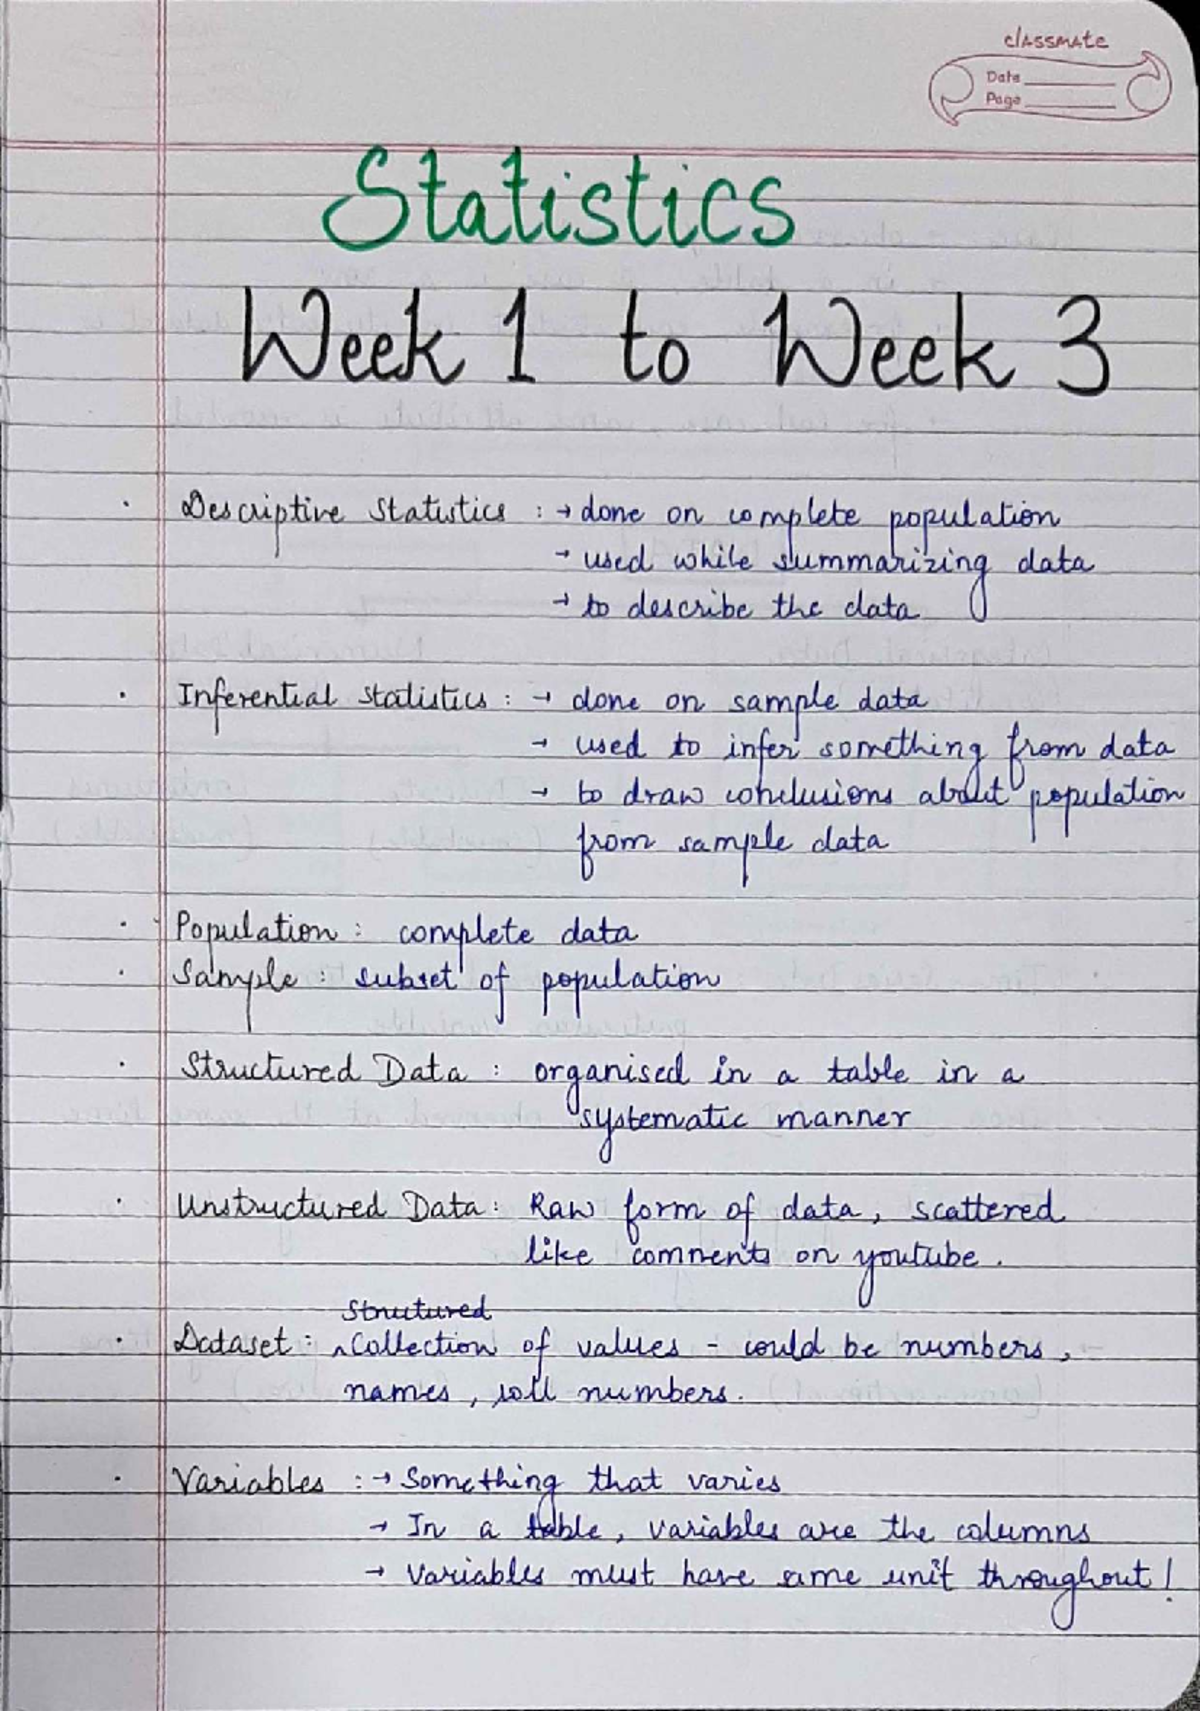 classmate
Date
Page
Statistics
Week 1 to Week 3
· Descriptive Statistics : → done on complete population
→ used while summarizing data
→ to describe the data
· Inferential statistics : → done on sample data
→ used to infer something from data
→ to draw conclusions about population
from sample data
· Population : complete data
· Sample : subset of population
· Structured Data : organised in a table in a
systematic manner
· Unstructured Data : Raw form of data, scattered
like comments on youtube.
Structured
· Dataset : ^Collection of values - could be numbers,
names, roll numbers.
· Variables : → Something that varies
→ In a table, variables are the columns
→ Variables must have same unit throughout!